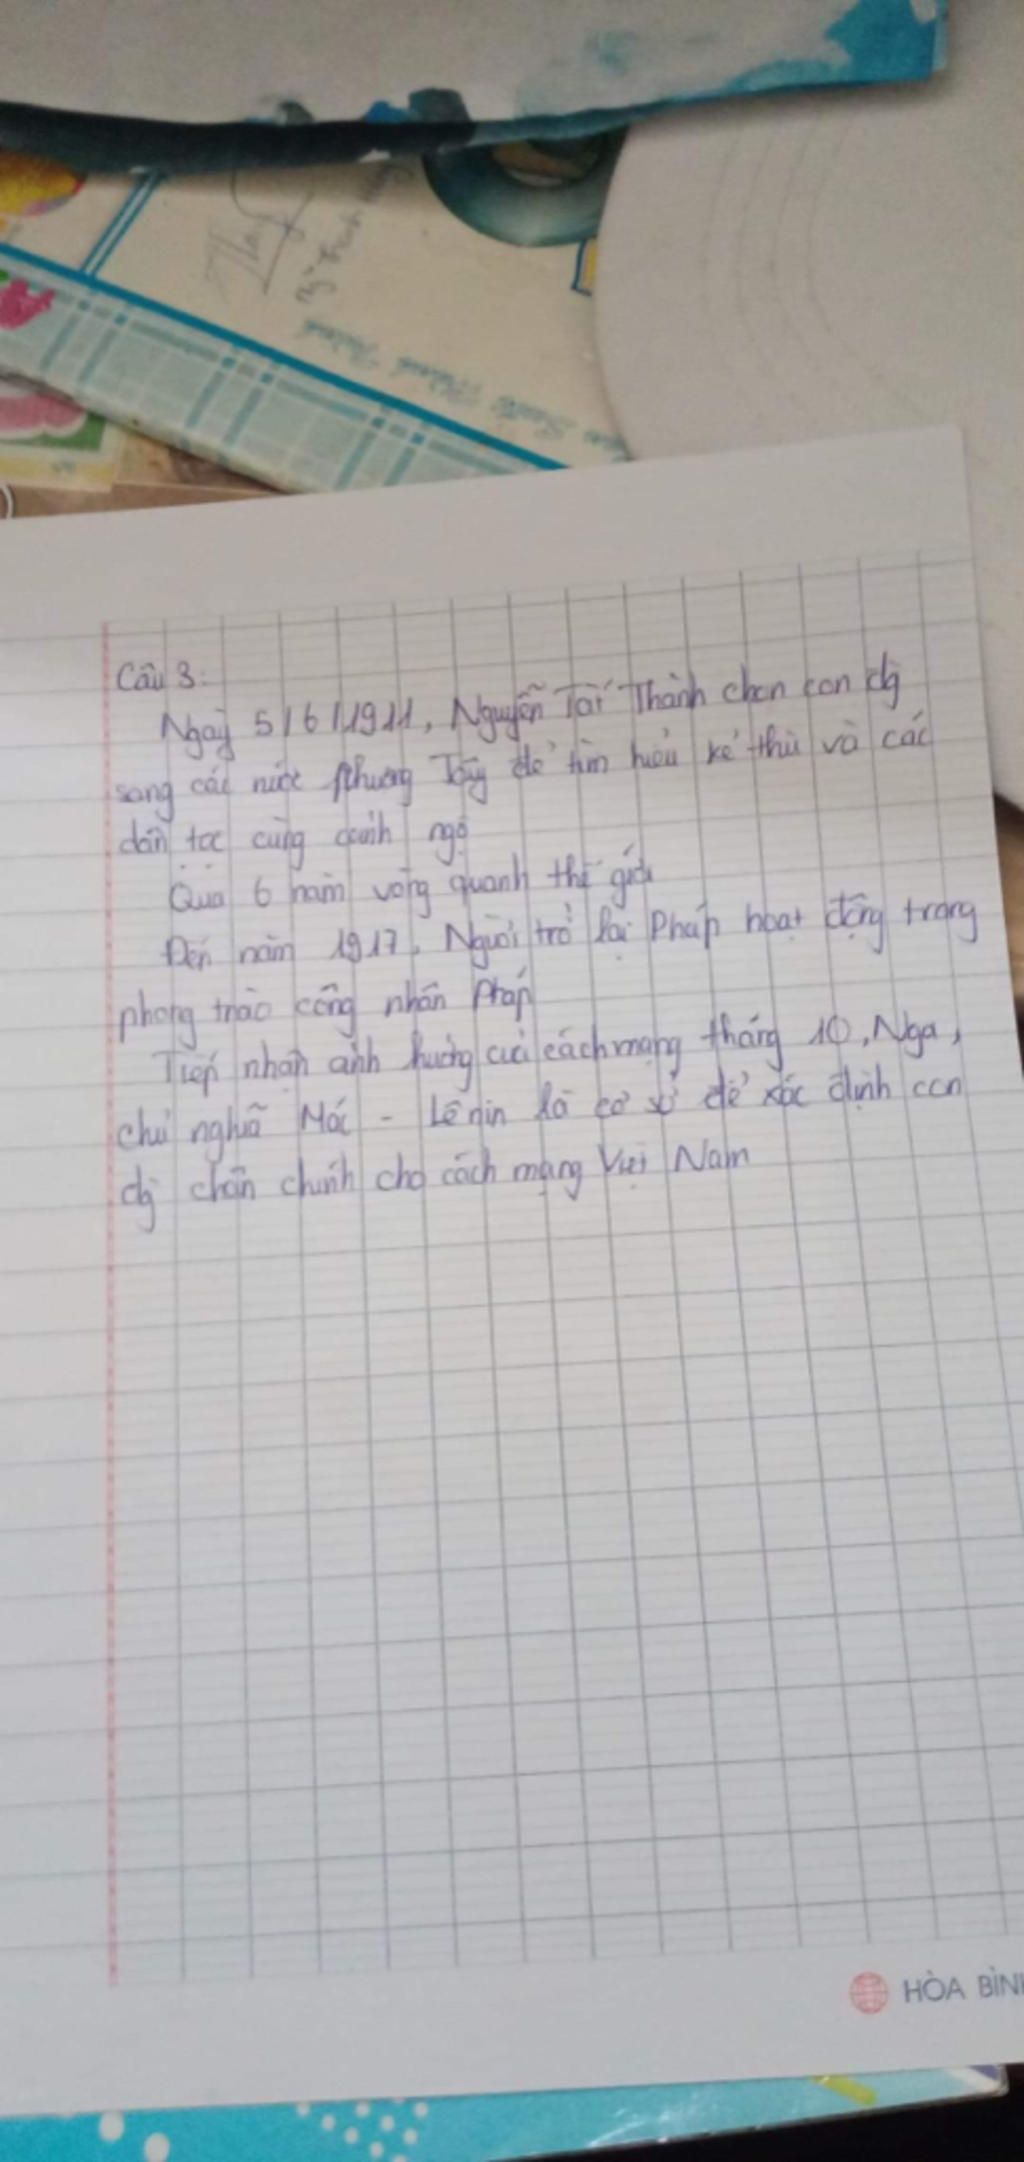 Câu 3:
Ngày 5/6/1911, Nguyễn Tất Thành chọn con đg
sang các nước phương Tây để tìm hiểu kẻ thù và các
dân tộc cùng cảnh ngộ
Qua 6 năm vòng quanh thế giới
Đến năm 1917, Người trở lại Pháp hoạt động trong
phong trào công nhân Pháp
Tiếp nhận ảnh hưởng của cách mạng tháng 10, Nga,
chủ nghĩa Mác - Lênin là cơ sở để xác định con
đg chân chính cho cách mạng Việt Nam
HÒA BÌN